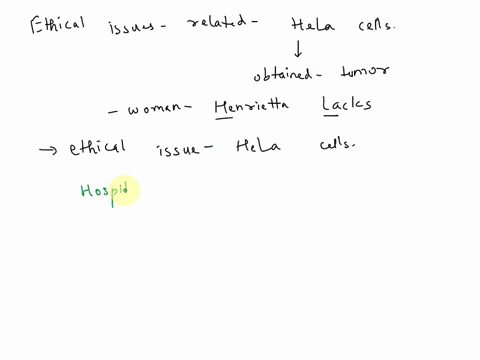 Ethical issues - related - HeLa cells.
↓
obtained - tumor
- woman - Henrietta Lacks
→ ethical issue - HeLa cells.
Hospit